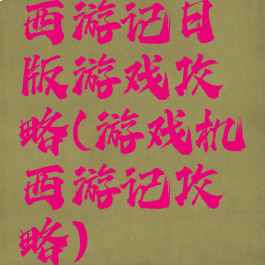 西游记日
版游戏攻
略(游戏机
西游记攻
略)